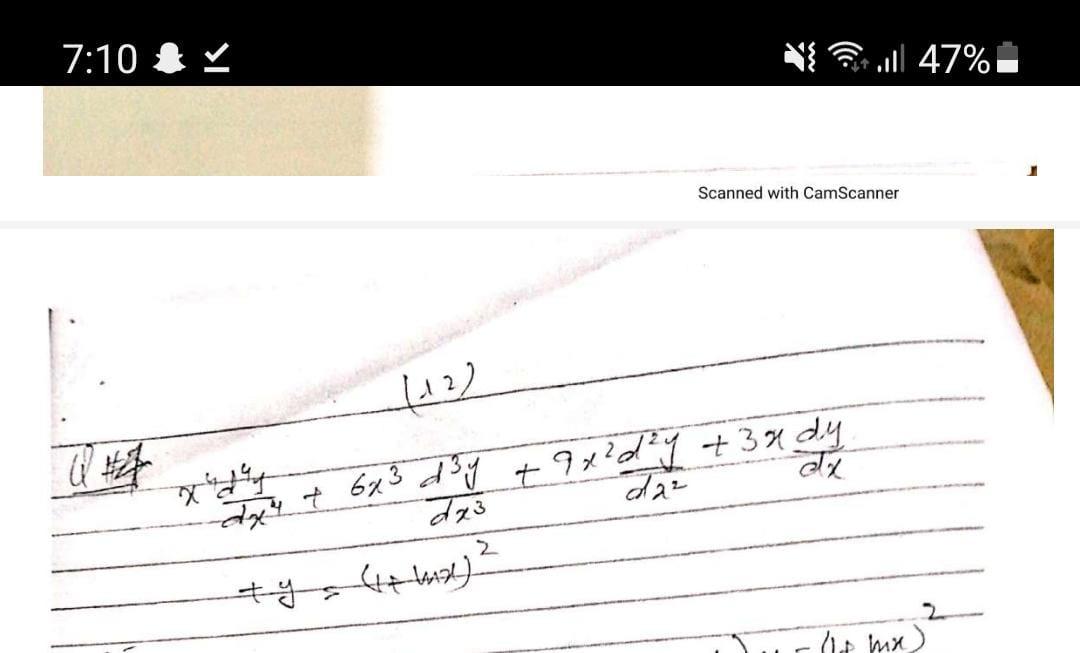 7:10 47%
Scanned with CamScanner
(12)
Q #4 x⁴d⁴y/dx⁴ + 6x³ d³y/dx³ + 9x²d²y/dx² + 3x dy/dx
+ y = (1+ lnx)²
= (1+ lnx)²